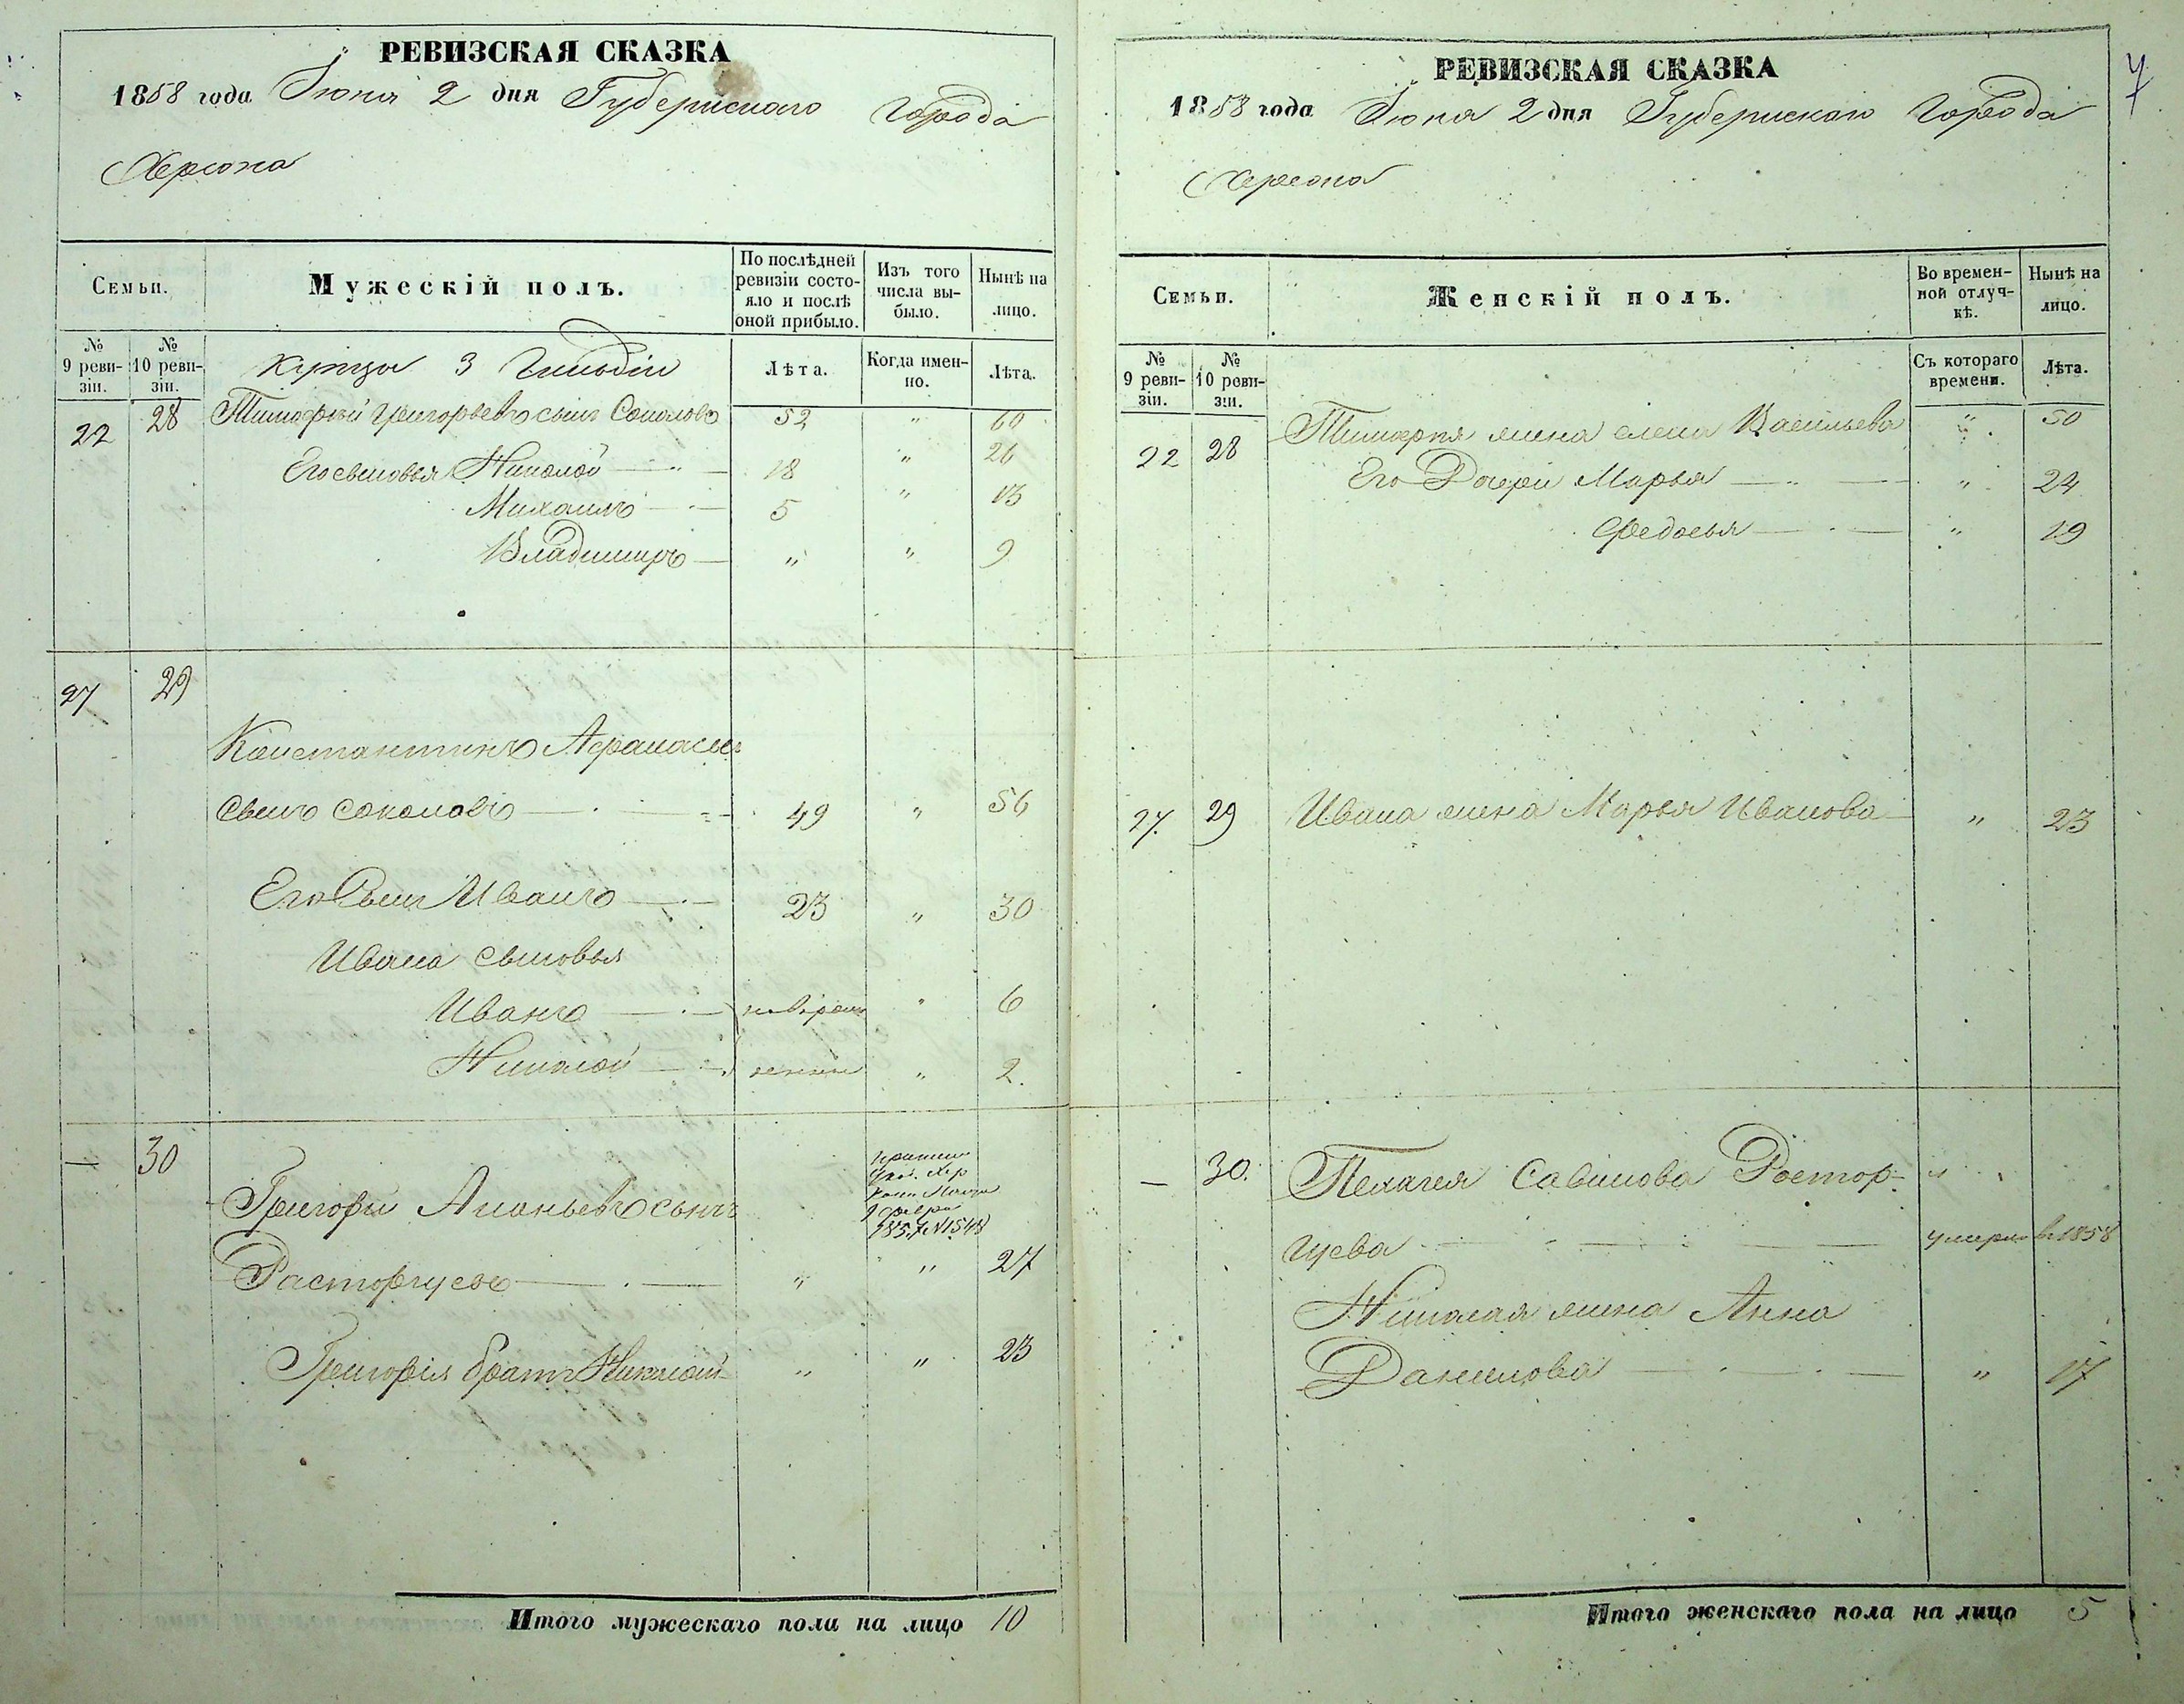 РЕВИЗСКАЯ СКАЗКА
1858 года Июня 2 дня Губернскаго Города
Херсона
Семьи.
Мужескій полъ.
По послѣдней ревизіи состояло и послѣ оной прибыло.
Изъ того числа выбыло.
Нынѣ на лицо.
№ 9 ревизіи.
№ 10 ревизіи.
Купцы 3 Гильдіи
Лѣта.
Когда именно.
Лѣта.
22 28 Тимофей Григорьевъ сынъ Соколовъ 52 " 60
Его сыновья Николай 18 " 26
Михаилъ 5 " 13
Владимиръ " " 9
27 29
Константинъ Афанасьев
Сынъ Соколовъ 49 " 56
Его Сынъ Иванъ 23 " 30
Ивана сыновья
Иванъ " 6
Николай " 2.
— 30
Григорій Ананьевъ сынъ
1857 № 1548
Расторгуевъ " " 27
Григорія братъ Николай " " 23
Итого мужескаго пола на лицо 10
7
РЕВИЗСКАЯ СКАЗКА
1858 года Июня 2 дня Губернскаго Города
Херсона
Семьи.
Женскій полъ.
Во временной отлучкѣ.
Нынѣ на лицо.
№ 9 ревизіи.
№ 10 ревизіи.
Съ котораго времени.
Лѣта.
22 28 Тимофея жена Елена Васильева " 50
Его Дочери Марья " 24
Федосья " 19
27. 29 Ивана жена Марья Иванова " 23
— 30. Пелагея Савинова Растор- "
гуева умерла в 1858
Николая жена Анна
Данилова " 17
Итого женскаго пола на лицо 5